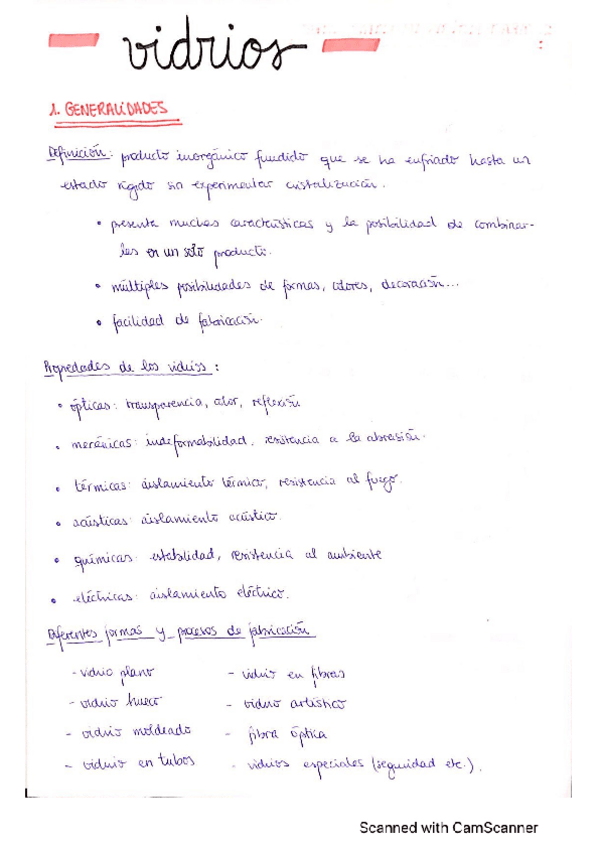 vidrios
1. GENERALIDADES
Definición: producto inorgánico fundido que se ha enfriado hasta un
estado rígido sin experimentar cristalización.
• presenta muchas características y la posibilidad de combinar-
las en un solo producto.
• múltiples posibilidades de formas, colores, decoración...
• facilidad de fabricación.
Propiedades de los vidrios:
• ópticas: transparencia, color, reflexión
• mecánicas: indeformabilidad, resistencia a la abrasión.
• térmicas: aislamiento térmico, resistencia al fuego.
• acústicas: aislamiento acústico.
• químicas: estabilidad, resistencia al ambiente
• eléctricas: aislamiento eléctrico.
Diferentes formas y procesos de fabricación
- vidrio plano - vidrio en fibras
- vidrio hueco - vidrio artístico
- vidrio moldeado - fibra óptica
- vidrio en tubos - vidrios especiales (seguridad etc.).
Scanned with CamScanner